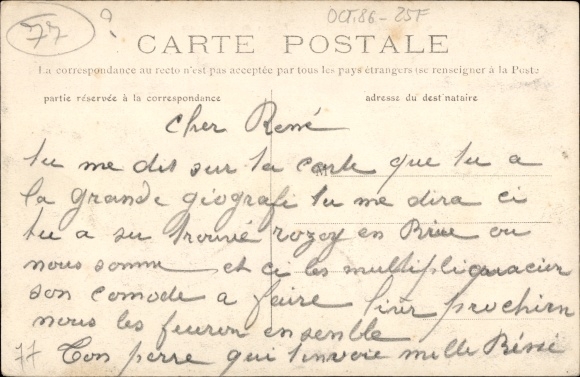 77 ? OCT.86 - 25F
CARTE POSTALE
La correspondance au recto n'est pas acceptée par tous les pays étrangers (se renseigner à la Poste
partie réservée à la correspondance
adresse du destinataire
cher René
tu me dit sur ta carte que tu a
la grande giografi tu me dira ci
tu a su trouvé rozoy en Brie ou
nous somme et ci les multiplicacion
son comode a faire prochien
nous les feuron ensenble
77 Ton perre qui t'envoie mille